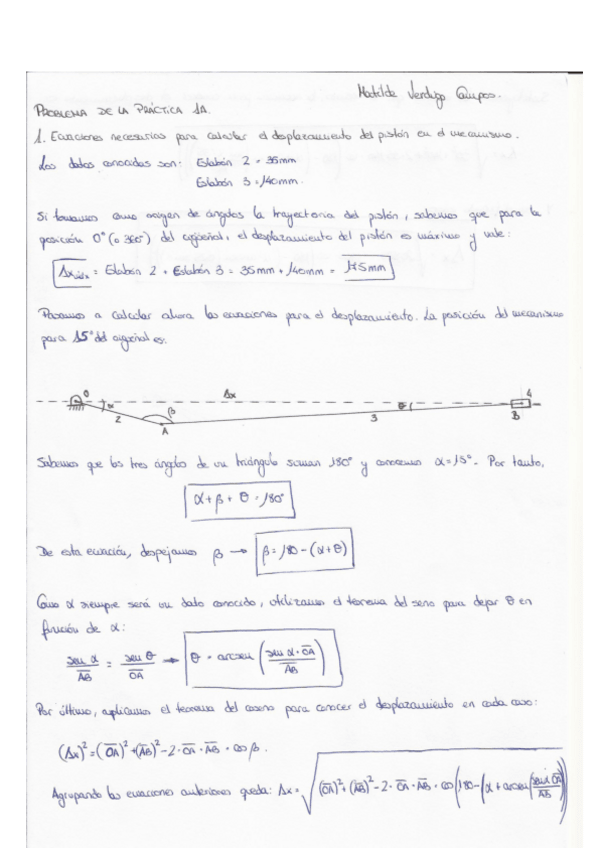 Matilde Verdugo Campos.
PROBLEMA DE LA PRÁCTICA 1A.
1. Ecuaciones necesarias para calcular el desplazamiento del pistón en el mecanismo.
Los datos conocidos son: Eslabón 2 = 35mm
Eslabón 3 = 140mm.
Si tomamos como origen de ángulos la trayectoria del pistón, sabemos que para la
posición 0° (o 360°) del cigüeñal, el desplazamiento del pistón es máximo y vale:
Δx máx = Eslabón 2 + Eslabón 3 = 35mm + 140mm = 175mm
Pasamos a calcular ahora las ecuaciones para el desplazamiento. La posición del mecanismo
para 15° del cigüeñal es:
O α 2 β A Δx 3 θ 4 B
Sabemos que los tres ángulos de un triángulo suman 180° y conocemos α=15°. Por tanto,
α + β + θ = 180°
De esta ecuación, despejamos β → β = 180 - (α+θ)
Como α siempre será un dato conocido, utilizamos el teorema del seno para dejar θ en
función de α:
sen α / AB = sen θ / OA → θ = arcsen (sen α · OA / AB)
Por último, aplicamos el teorema del coseno para conocer el desplazamiento en cada caso:
(Δx)² = (OA)² + (AB)² - 2 · OA · AB · cos β.
Agrupando las ecuaciones anteriores queda: Δx = √((OA)² + (AB)² - 2 · OA · AB · cos(180 - (α + arcsen(sen α · OA / AB))))